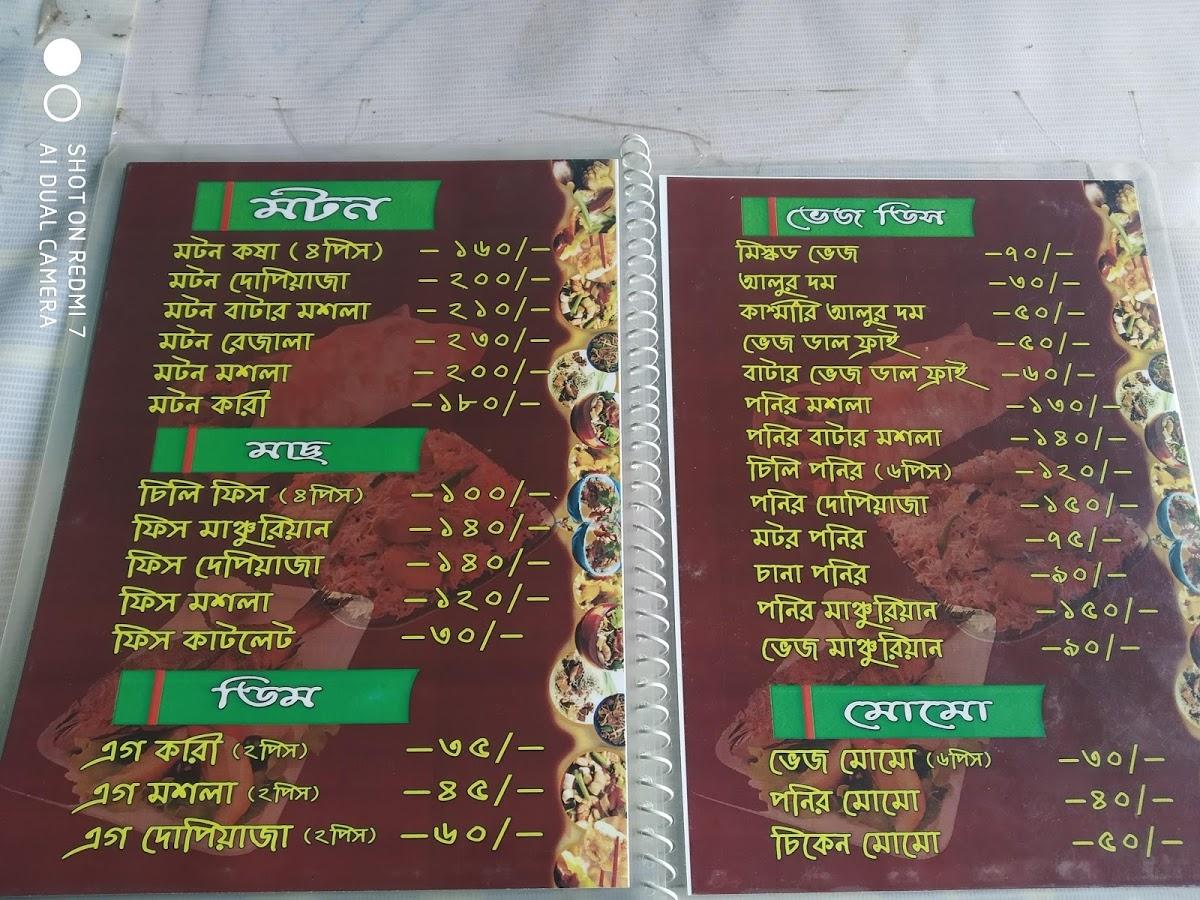 SHOT ON REDMI 7
AI DUAL CAMERA
মটন
মটন কষা (৪পিস) – ১৬০/–
মটন দোপিয়াজা – ২০০/–
মটন বাটার মশলা – ২১০/–
মটন রেজালা – ২৩০/–
মটন মশলা – ২০০/–
মটন কারী –১৮০/–
মাছ
চিলি ফিস (৪পিস) –১০০/–
ফিস মাঞ্চুরিয়ান –১৪০/–
ফিস দেপিয়াজা –১৪০/–
ফিস মশলা –১২০/–
ফিস কাটলেট –৩০/–
ডিম
এগ কারী (২পিস) –৩৫/–
এগ মশলা (২পিস) –৪৫/–
এগ দোপিয়াজা (২পিস) –৬০/–
ভেজ ডিস
মিক্সড ভেজ –৭০/–
আলুর দম –৩০/–
কাশ্মীরি আলুর দম –৫০/–
ভেজ ডাল ফ্রাই –৫০/–
বাটার ভেজ ডাল ফ্রাই –৬০/–
পনির মশলা –১৩০/–
পনির বাটার মশলা –১৪০/–
চিলি পনির (৬পিস) –১২০/–
পনির দোপিয়াজা –১৫০/–
মটর পনির –৭৫/–
চানা পনির –৯০/–
পনির মাঞ্চুরিয়ান –১৫০/–
ভেজ মাঞ্চুরিয়ান –৯০/–
মোমো
ভেজ মোমো (৬পিস) –৩০/–
পনির মোমো –৪০/–
চিকেন মোমো –৫০/–